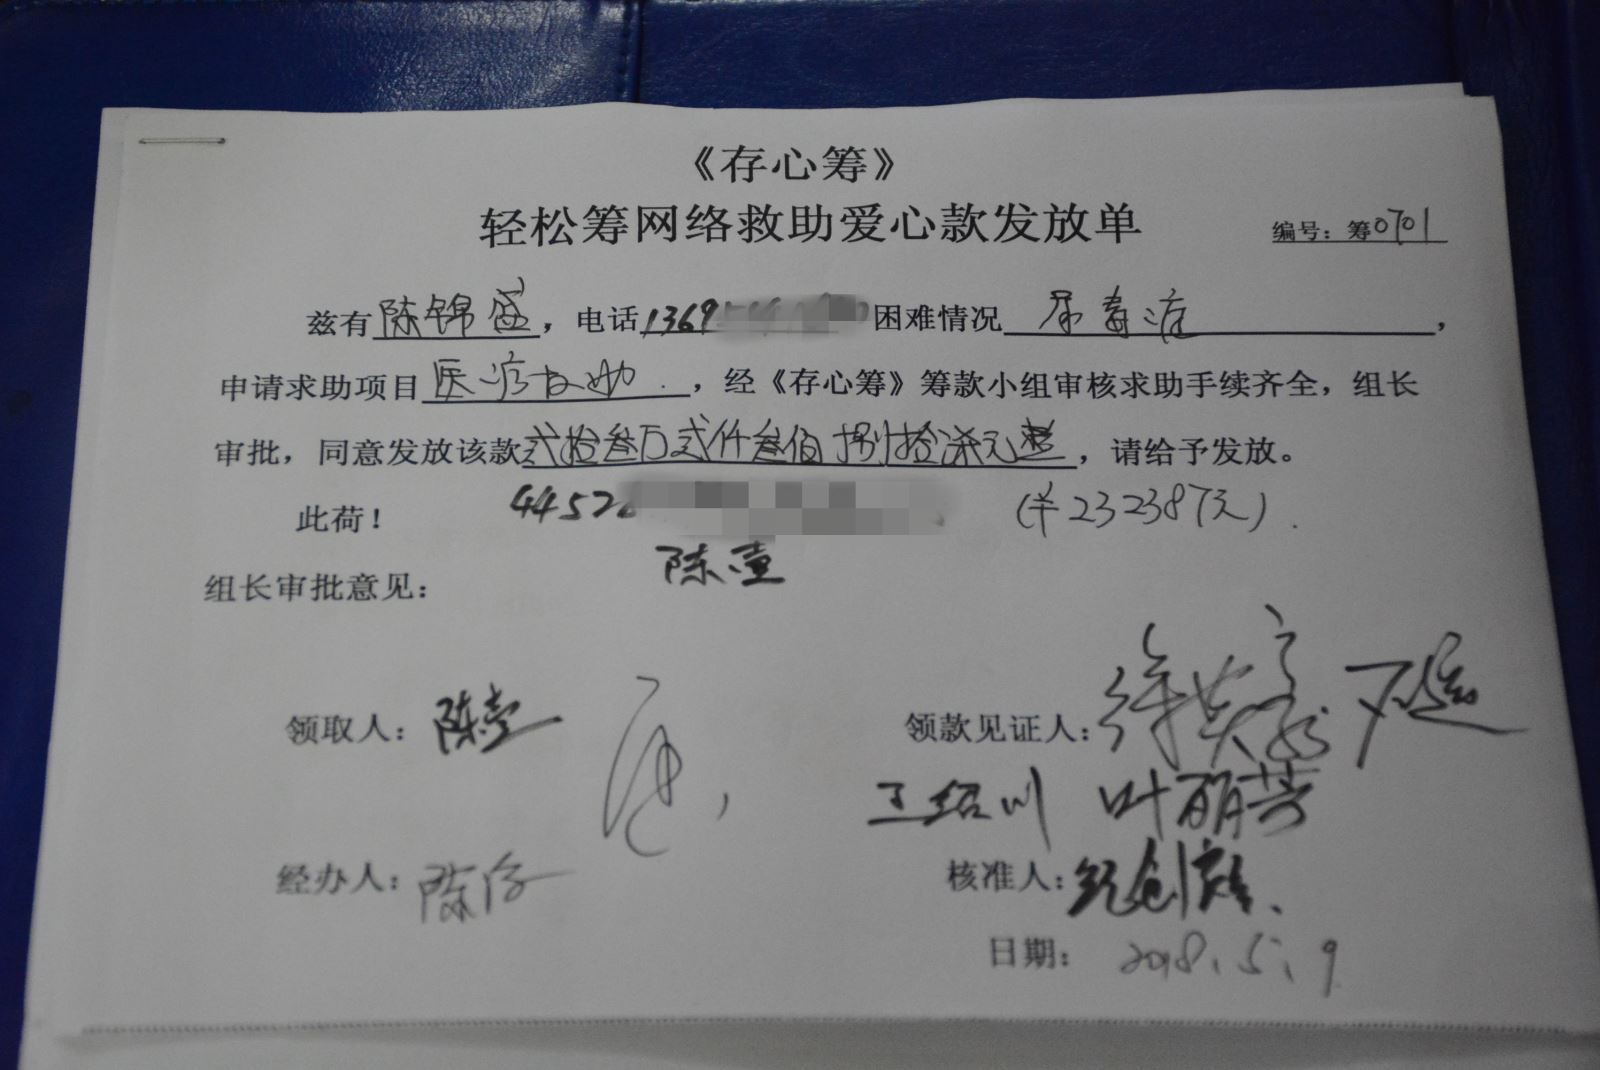 《存心筹》
轻松筹网络救助爱心款发放单
编号：筹0701
兹有陈锦盛，电话1369 困难情况尿毒症，
申请求助项目医疗救助.，经《存心筹》筹款小组审核求助手续齐全，组长
审批，同意发放该款弍拾叁万弍仟叁佰捌拾柒元整，请给予发放。
此荷！ 4452 (￥232387元).
组长审批意见：
领取人：陈 领款见证人：
王绍川 叶丽芳
经办人：陈 核准人：
日期：2018.5.9